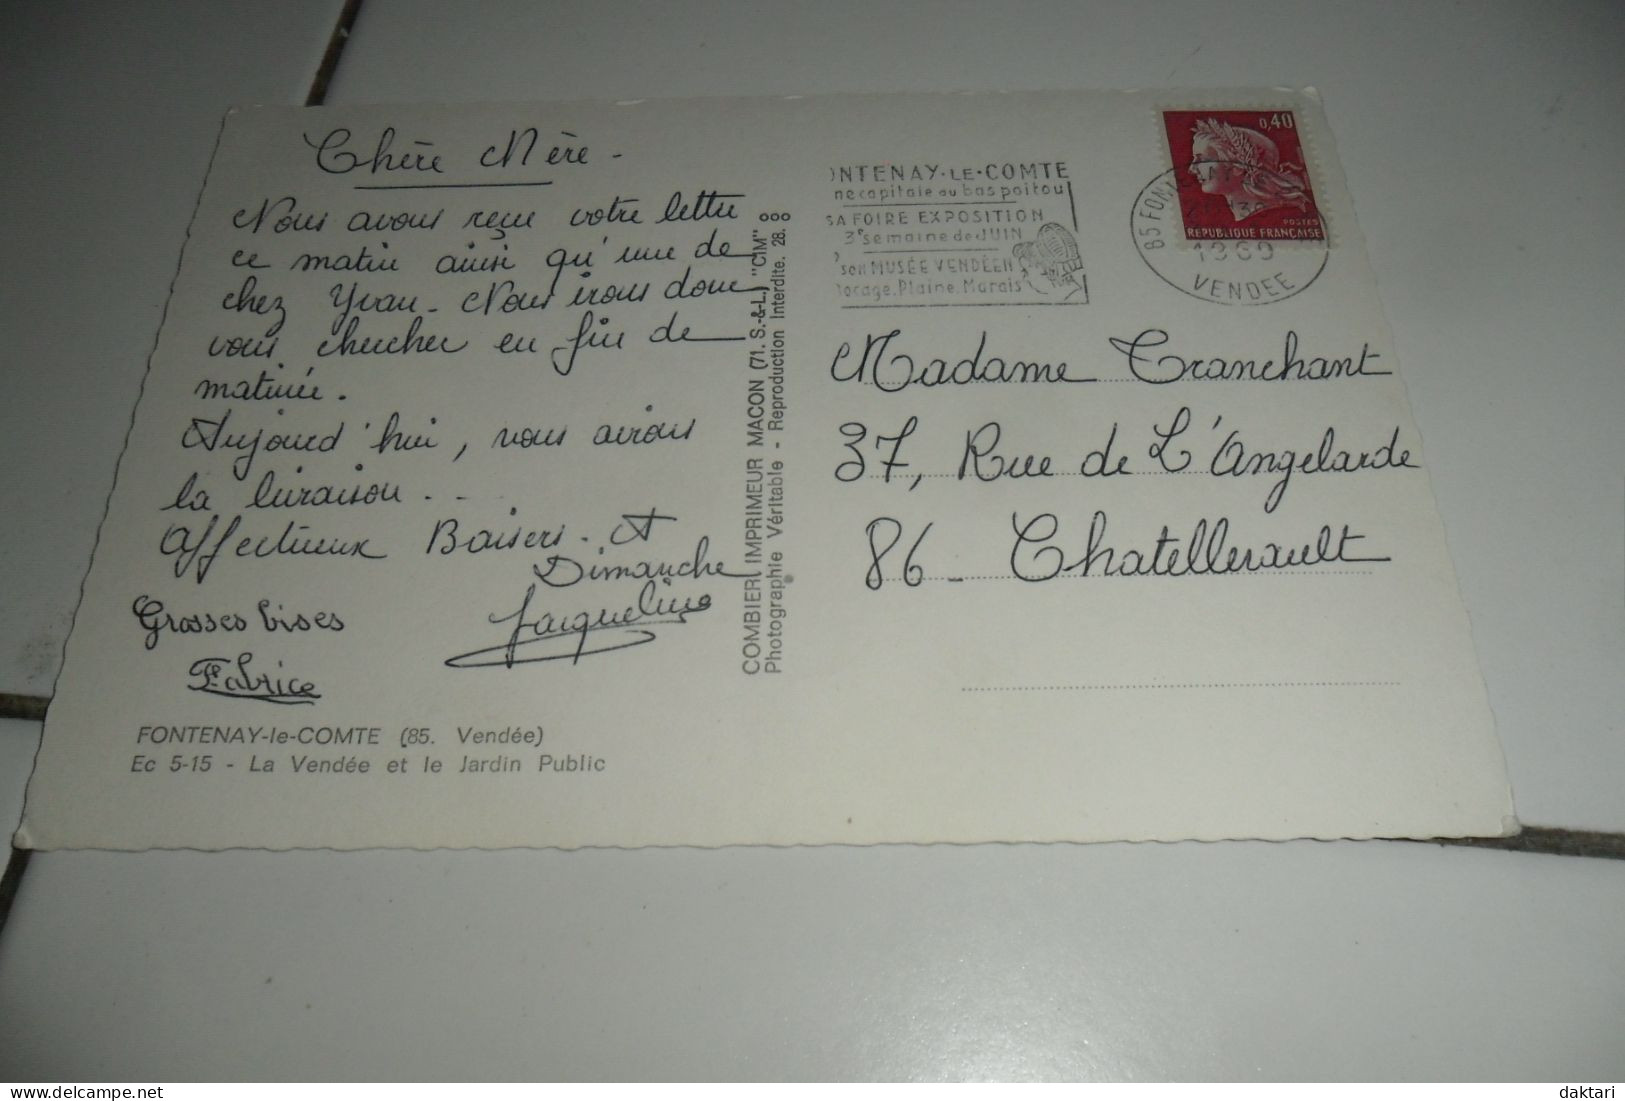 Chère Mère -
Nous avons reçu votre lettre
ce matin ainsi qu'une de
chez Yvan. Nous irons donc
vous chercher en fin de
matinée.
Aujourd'hui, nous avons
la livraison . . .
Affectueux Baisers. A
Dimanche
Jacqueline
Grosses bises
Fabrice
FONTENAY-le-COMTE (85. Vendée)
Ec 5-15 - La Vendée et le Jardin Public
COMBIER IMPRIMEUR MACON (71. S.-&-L.) "CIM"
Photographie Véritable - Reproduction Interdite. 28.
ONTENAY-LE-COMTE
ne capitale du bas poitou
SA FOIRE EXPOSITION
3e semaine de JUIN
son MUSÉE VENDÉEN
bocage. Plaine. Marais
85 FONTENAY
1969
VENDEE
0,40
POSTES
REPUBLIQUE FRANÇAISE
Madame Tranchant
37, Rue de L'Angelarde
86 - Chatellerault
daktari